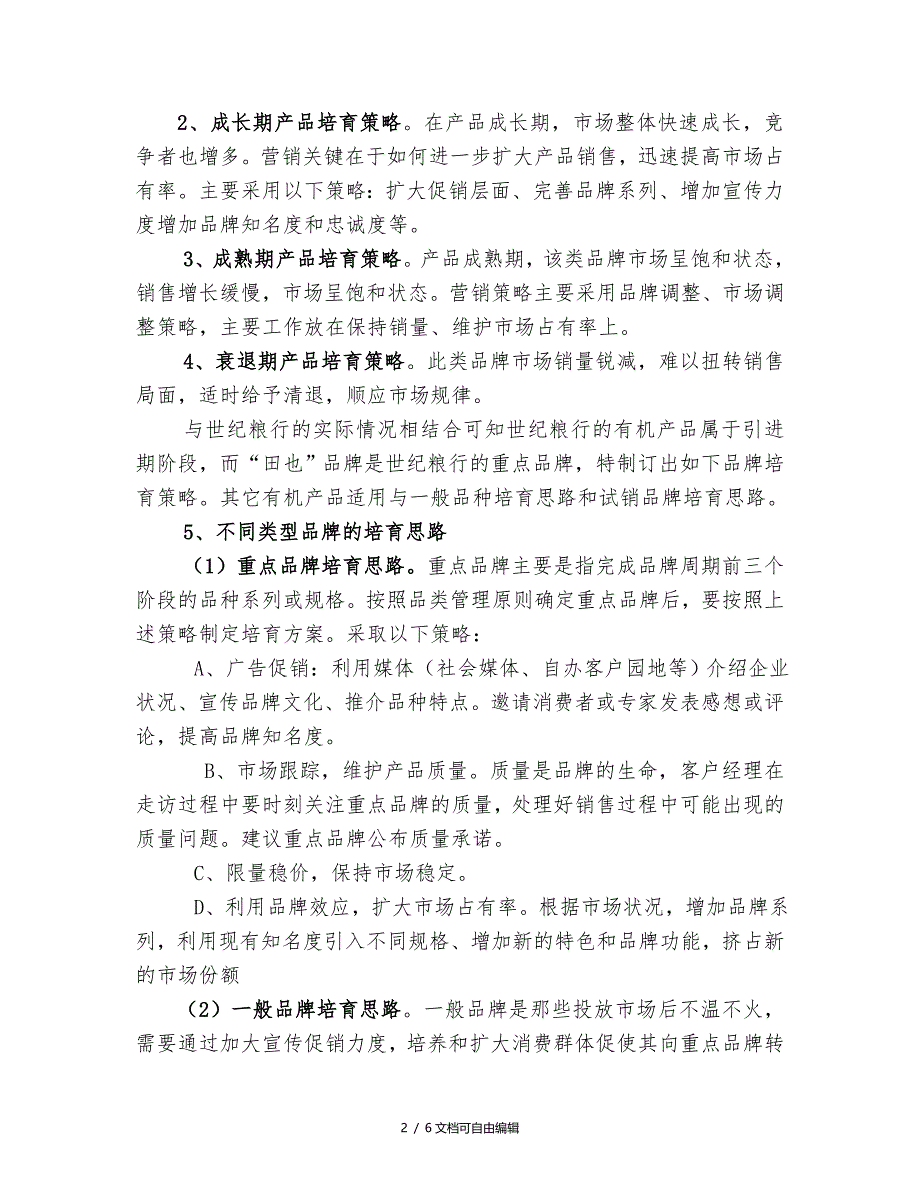 2、成长期产品培育策略。在产品成长期，市场整体快速成长，竞
争者也增多。营销关键在于如何进一步扩大产品销售，迅速提高市场占
有率。主要采用以下策略：扩大促销层面、完善品牌系列、增加宣传力
度增加品牌知名度和忠诚度等。
3、成熟期产品培育策略。产品成熟期，该类品牌市场呈饱和状态，
销售增长缓慢，市场呈饱和状态。营销策略主要采用品牌调整、市场调
整策略，主要工作放在保持销量、维护市场占有率上。
4、衰退期产品培育策略。此类品牌市场销量锐减，难以扭转销售
局面，适时给予清退，顺应市场规律。
与世纪粮行的实际情况相结合可知世纪粮行的有机产品属于引进
期阶段，而“田也”品牌是世纪粮行的重点品牌，特制订出如下品牌培
育策略。其它有机产品适用与一般品种培育思路和试销品牌培育思路。
5、不同类型品牌的培育思路
（1）重点品牌培育思路。重点品牌主要是指完成品牌周期前三个
阶段的品种系列或规格。按照品类管理原则确定重点品牌后，要按照上
述策略制定培育方案。采取以下策略：
A、广告促销：利用媒体（社会媒体、自办客户园地等）介绍企业
状况、宣传品牌文化、推介品种特点。邀请消费者或专家发表感想或评
论，提高品牌知名度。
B、市场跟踪，维护产品质量。质量是品牌的生命，客户经理在
走访过程中要时刻关注重点品牌的质量，处理好销售过程中可能出现的
质量问题。建议重点品牌公布质量承诺。
C、限量稳价，保持市场稳定。
D、利用品牌效应，扩大市场占有率。根据市场状况，增加品牌系
列，利用现有知名度引入不同规格、增加新的特色和品牌功能，挤占新
的市场份额
（2）一般品牌培育思路。一般品牌是那些投放市场后不温不火，
需要通过加大宣传促销力度，培养和扩大消费群体促使其向重点品牌转
2 / 6文档可自由编辑